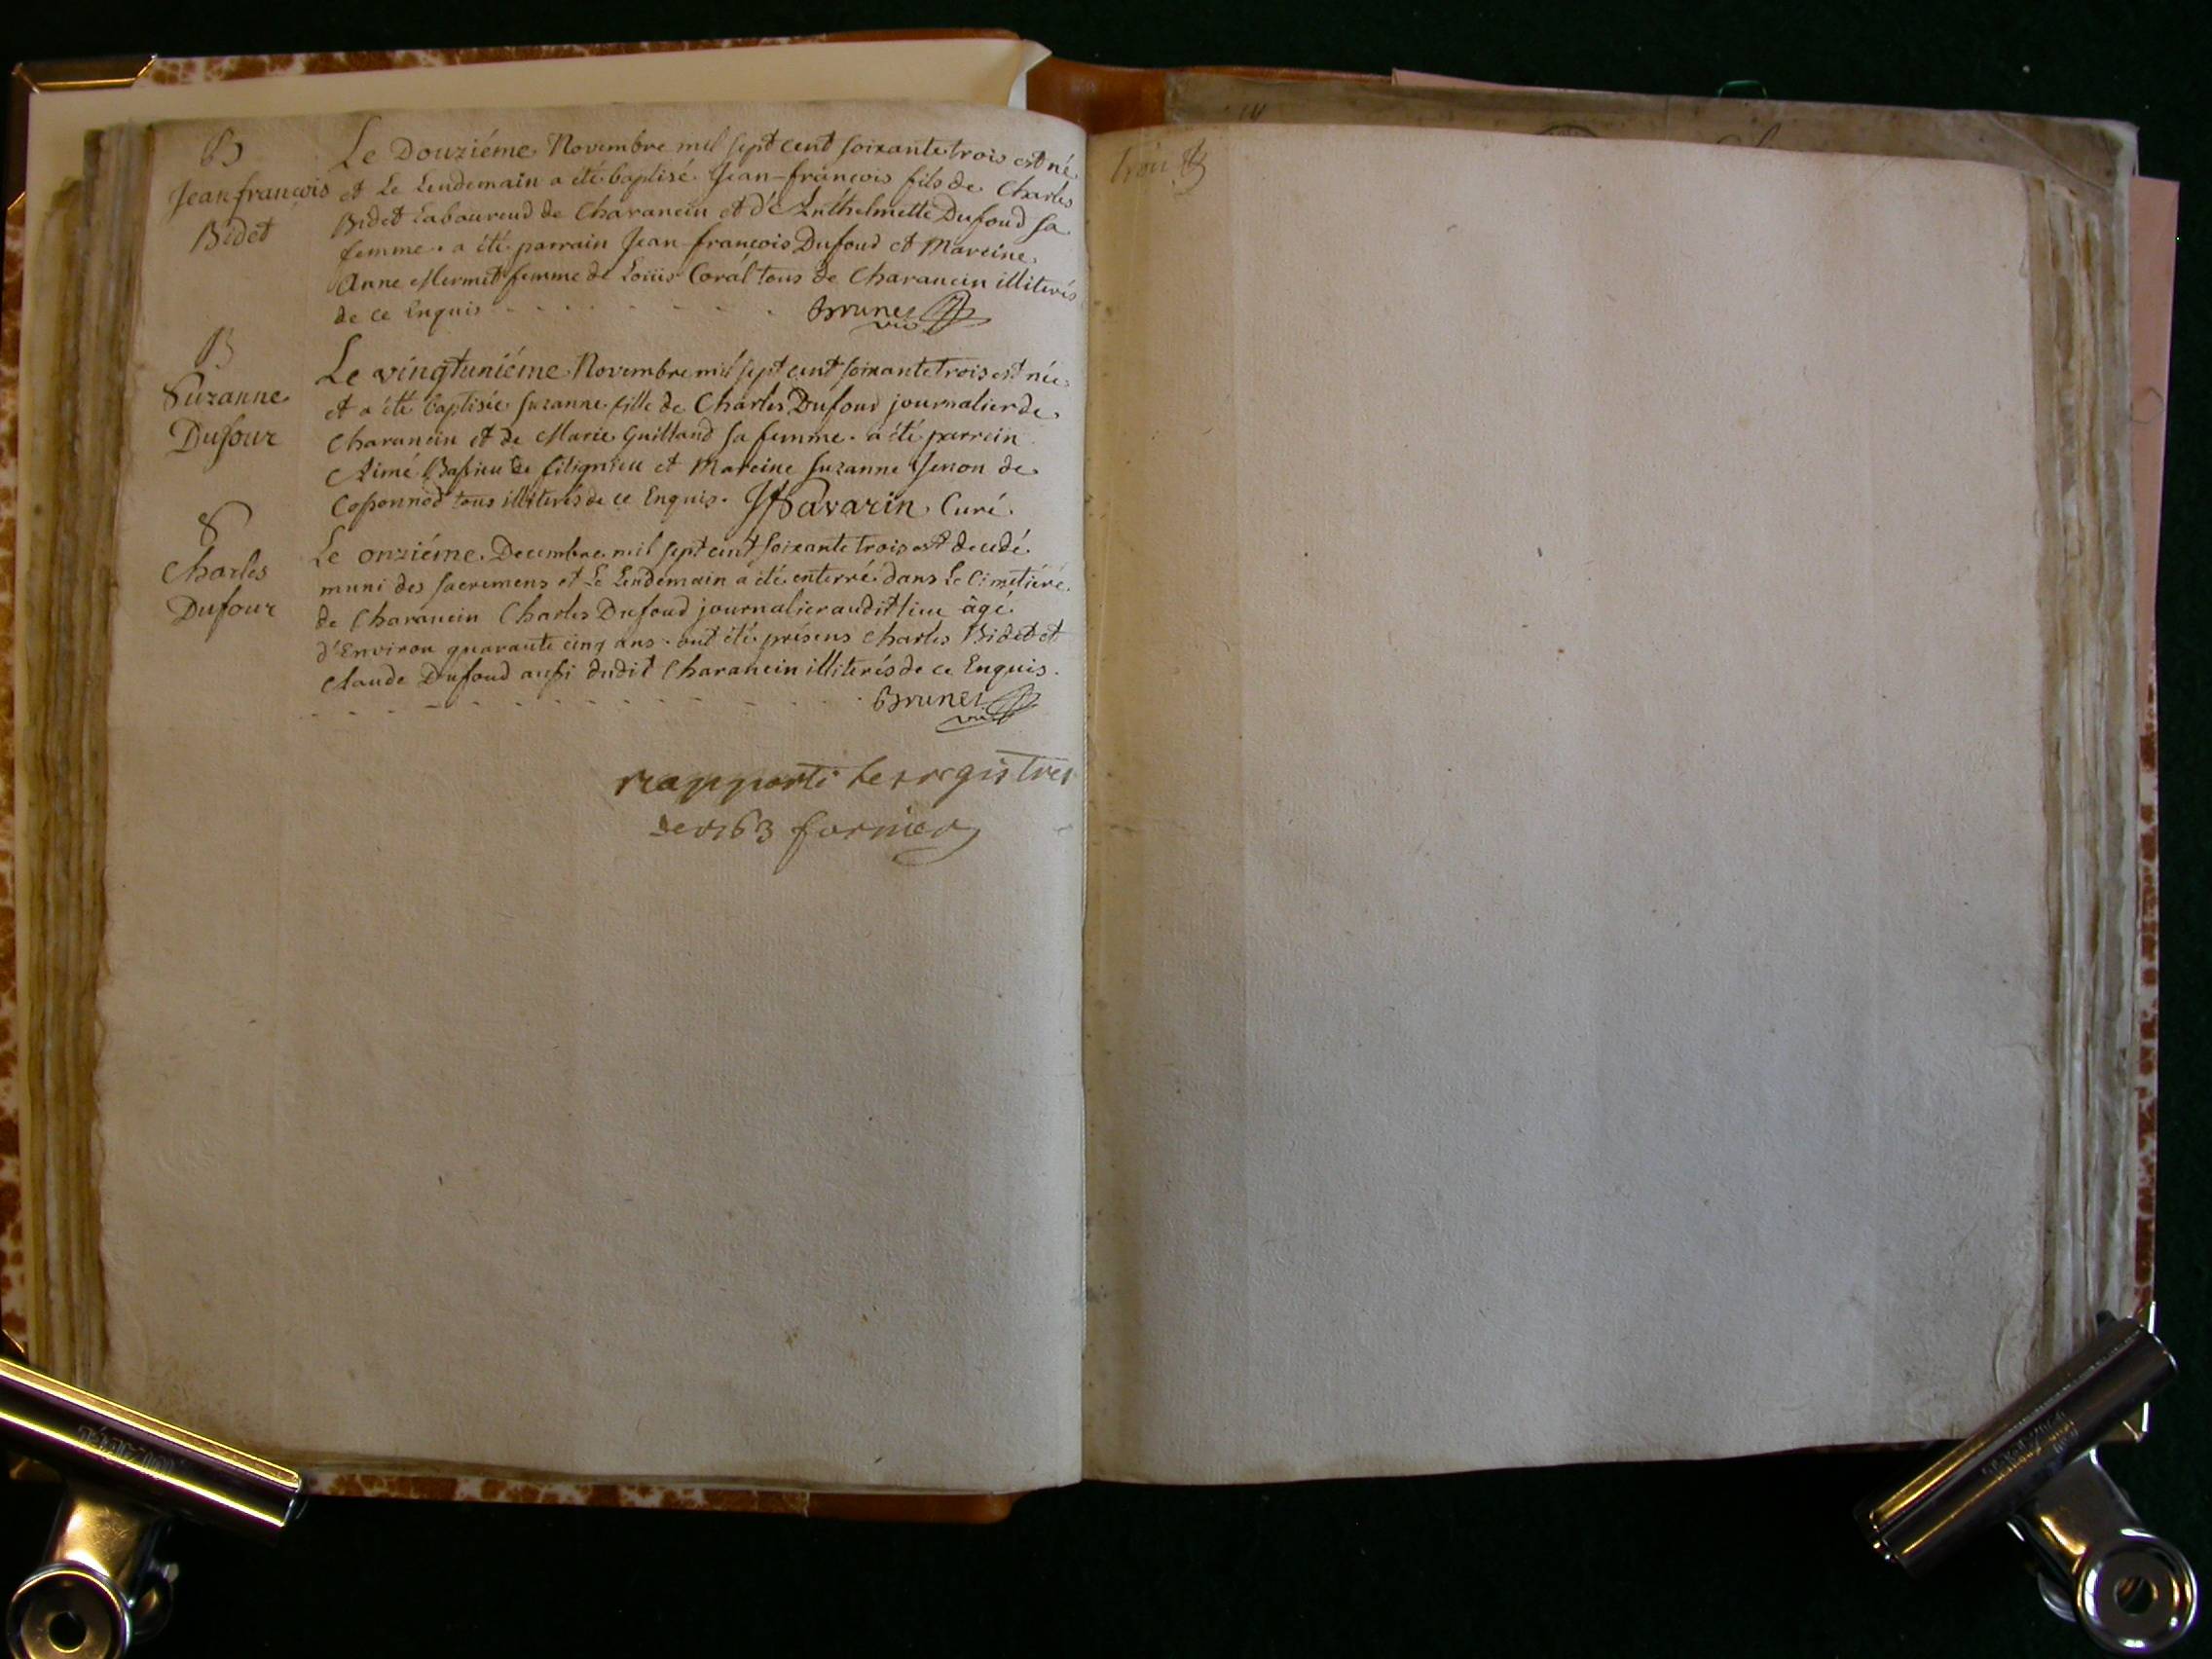 B
Jean françois
Bidet
Le Douziéme Novembre mil sept cent soixante trois est né
et Le Lendemain a été baptisé Jean-françois fils de Charles
Bidet Laboureud de Charancin et d'Enthelmette Dufoud sa
femme. a été parrain Jean-françois Dufoud et Mareine
Anne Mermet femme de Loüis Coral tous de Charancin illiterés
de ce Enquis - - - - - - - - Brunet vic
B
Suzanne
Dufour
Le vingtuniéme Novembre mil sept cent soixante trois est née
et a été baptisée Suzanne fille de Charles Dufoud journalier de
Charancin et de Marie Guilland sa femme. a été parrein
Aimé Bassieu de fitignieu et Mareine Suzanne de
tous illiterés de ce Enquis. Savarin Curé.
S
Charles
Dufour
Le onziéme Decembre mil sept cent soixante trois est decedé
muni des sacremens et Le Lendemain a été enterré dans Le Cimetiére
de Charancin Charles Dufoud journalier audit lieu âgé
d'Environ quarante cinq ans. ont été présens Charles Bidet et
Claude Dufoud aussi dudit Charancin illiterés de ce Enquis.
- - - - - - - - - - - - - Brunet vic
rapporté les registres
de 1763 fornier
trois